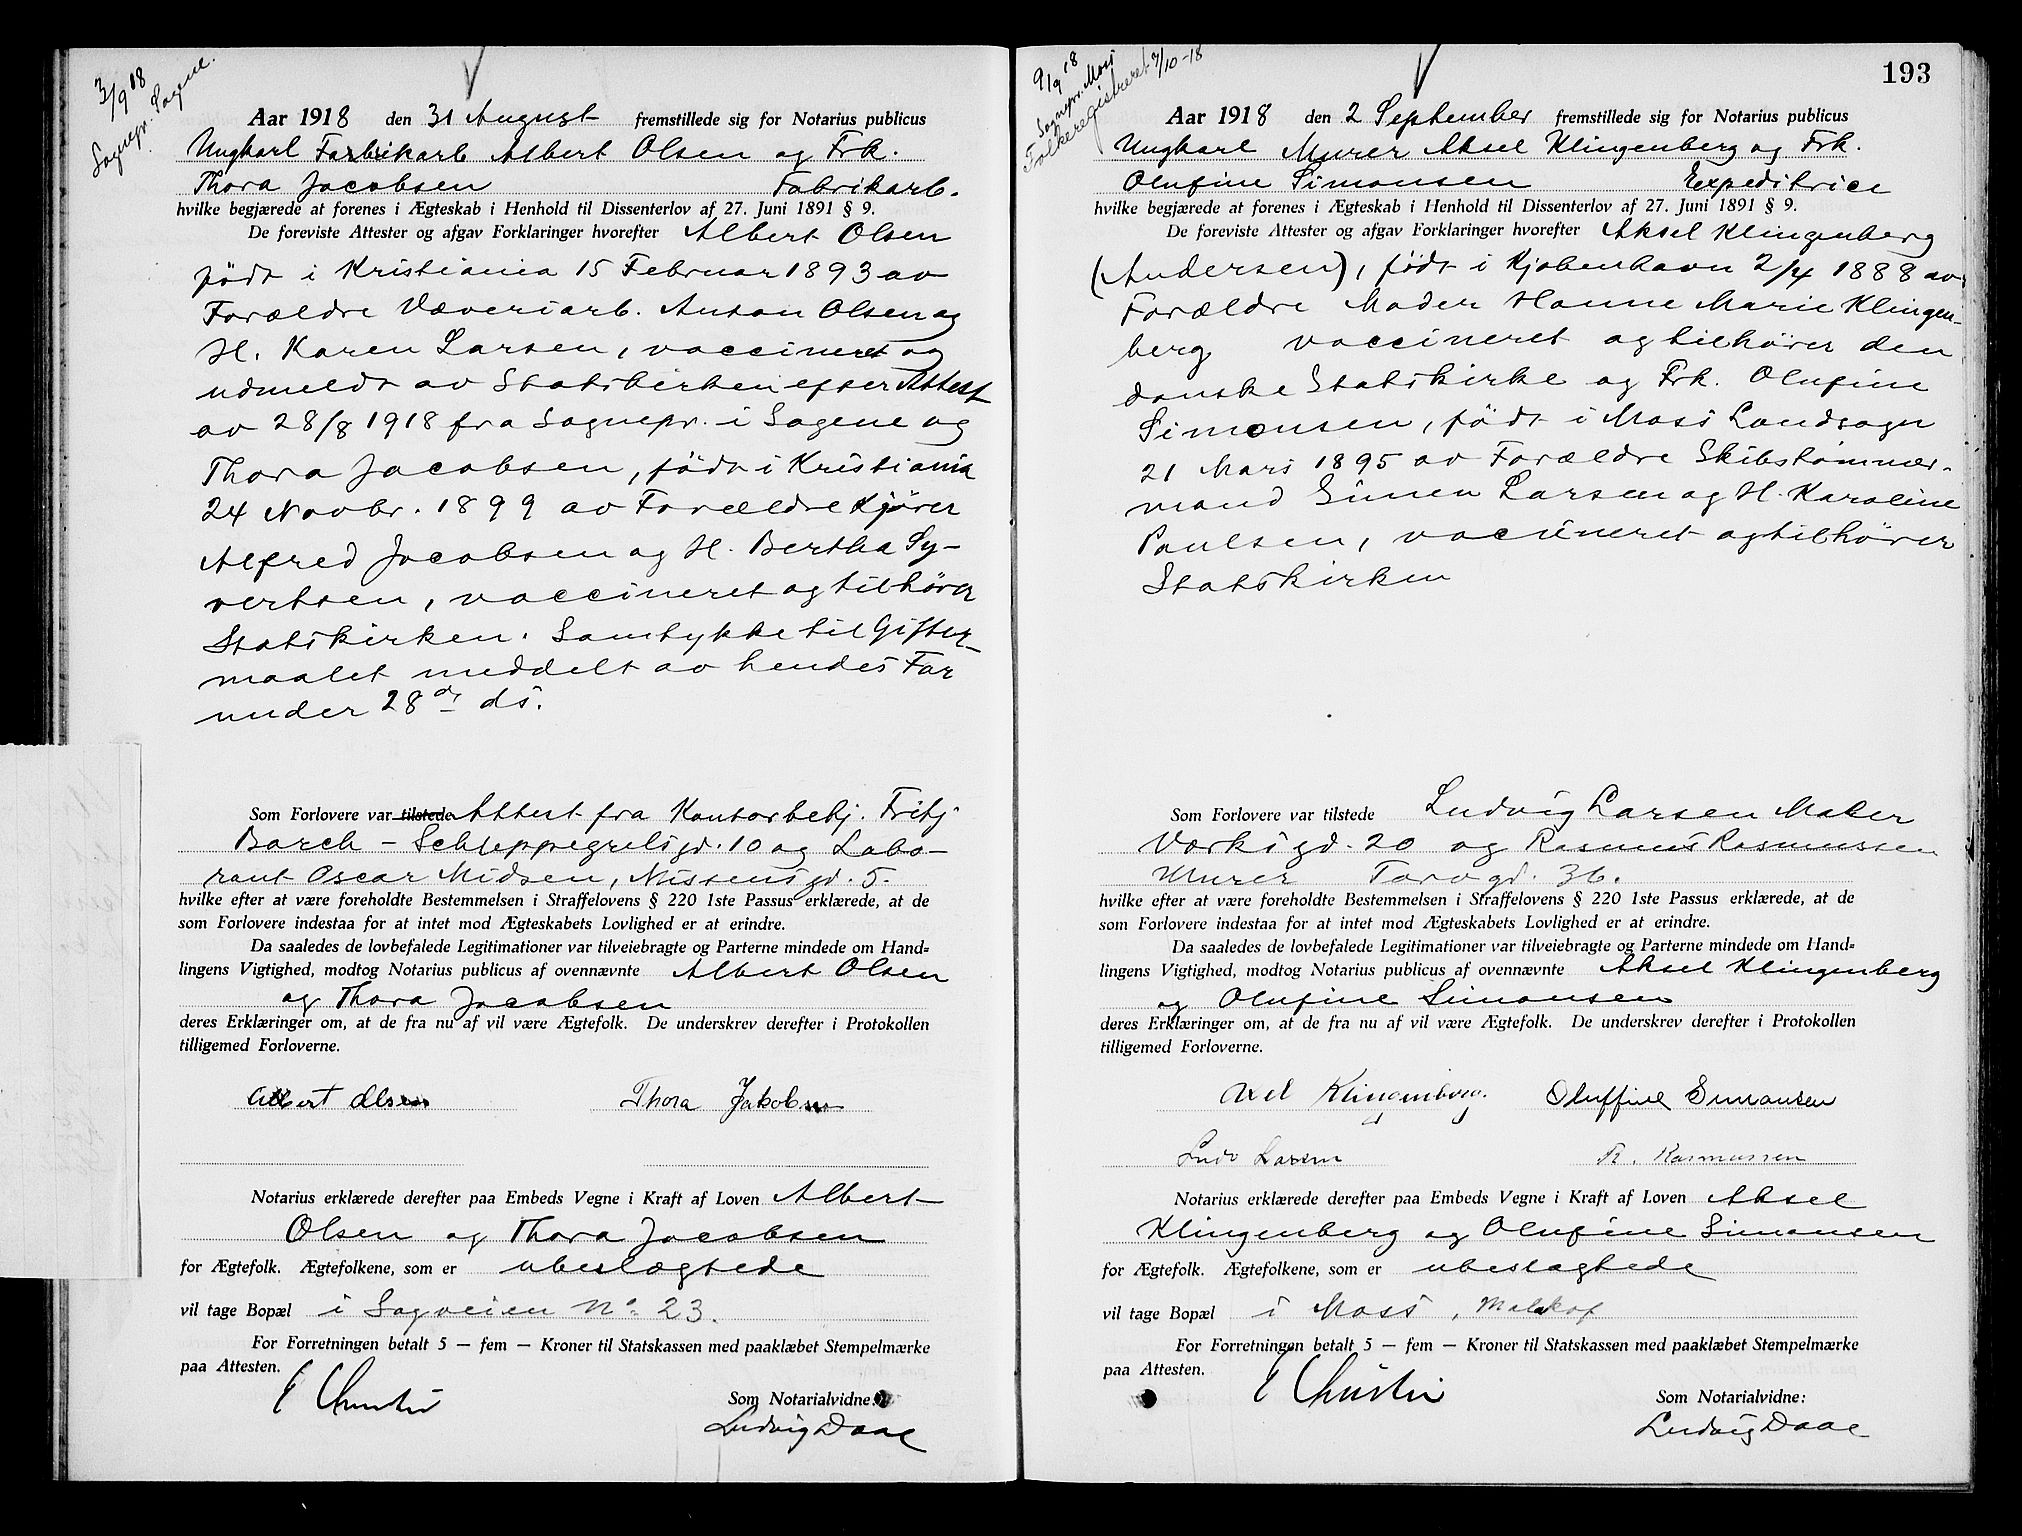 3/9 18
Sognepr. Sagene.
Aar 1918 den 31 August fremstillede sig for Notarius publicus
Ungkarl Fabrikarb Albert Olsen og Frk.
Thora Jacobsen Fabrikarb.
hvilke begjærede at forenes i Ægteskab i Henhold til Dissenterlov af 27. Juni 1891 § 9.
De foreviste Attester og afgav Forklaringer hvorefter Albert Olsen
født i Kristiania 15 Februar 1893 av
Forældre Væveriarb. Anton Olsen og
H. Karen Larsen, vaccineret og
udmeldt av Statskirken efter Attest
av 28/8 1918 fra Sognepr. i Sagene og
Thora Jacobsen, født i Kristiania
24 Novbr. 1899 av Forældre Kjører
Alfred Jacobsen og H. Bertha Sy-
vertsen, vaccineret og tilhører
Statskirken. Samtykke til Gifter-
maalet meddelt av hendes Far
under 28de ds.
Som Forlovere var tilstede Attest fra Kontorbetj. Fritj
Borch - Schleppegrelsgd. 10 og Labo-
rant Oscar Midsen, Nissensgd. 5.
hvilke efter at være foreholdte Bestemmelsen i Straffelovens § 220 1ste Passus erklærede, at de
som Forlovere indestaa for at intet mod Ægteskabets Lovlighed er at erindre.
Da saaledes de lovbefalede Legitimationer var tilveiebragte og Parterne mindede om Hand-
lingens Vigtighed, modtog Notarius publicus af ovennævnte Albert Olsen
og Thora Jacobsen
deres Erklæringer om, at de fra nu af vil være Ægtefolk. De underskrev derefter i Protokollen
tilligemed Forloverne.
Albert Olsen Thora Jakobsen
Notarius erklærede derefter paa Embeds Vegne i Kraft af Loven Albert
Olsen og Thora Jacobsen
for Ægtefolk. Ægtefolkene, som er ubeslægtede
vil tage Bopæl i Sagveien No 23.
For Forretningen betalt 5 — fem — Kroner til Statskassen med paaklæbet Stempelmærke
paa Attesten.
E Christie
Som Notarialvidne:
Ludvig Daae
193
9/9 18
Sognepr. Moss
Folkeregistreret 7/10-18
Aar 1918 den 2 September fremstillede sig for Notarius publicus
Ungkarl Murer Aksel Klingenberg og Frk.
Olufine Simonsen Expeditrice
hvilke begjærede at forenes i Ægteskab i Henhold til Dissenterlov af 27. Juni 1891 § 9.
De foreviste Attester og afgav Forklaringer hvorefter Aksel Klingenberg
(Andersen), født i Kjøbenhavn 2/4 1888 av
Forældre Moder Hanne Marie Klingen-
berg vaccineret og tilhører den
danske Statskirke og Frk. Olufine
Simonsen, født i Moss Landsogn
21 Mars 1895 av Forældre Skibstømmer-
mand Simen Larsen og H. Karoline
Paulsen, vaccineret og tilhører
Statskirken
Som Forlovere var tilstede Ludvig Larsen Maler
Verksgd. 20 og Rasmus Rasmussen
Murer Torvgd. 36.
hvilke efter at være foreholdte Bestemmelsen i Straffelovens § 220 1ste Passus erklærede, at de
som Forlovere indestaa for at intet mod Ægteskabets Lovlighed er at erindre.
Da saaledes de lovbefalede Legitimationer var tilveiebragte og Parterne mindede om Hand-
lingens Vigtighed, modtog Notarius publicus af ovennævnte Aksel Klingenberg
og Olufine Simonsen
deres Erklæringer om, at de fra nu af vil være Ægtefolk. De underskrev derefter i Protokollen
tilligemed Forloverne.
Axel Klingenberg. Oluffine Simonsen
Ludv Larsen R. Rasmussen
Notarius erklærede derefter paa Embeds Vegne i Kraft af Loven Aksel
Klingenberg og Olufine Simonsen
for Ægtefolk. Ægtefolkene, som er ubeslagtede
vil tage Bopæl i Moss, Malakof
For Forretningen betalt 5 — fem — Kroner til Statskassen med paaklæbet Stempelmærke
paa Attesten.
E Christie
Som Notarialvidne:
Ludvig Daae